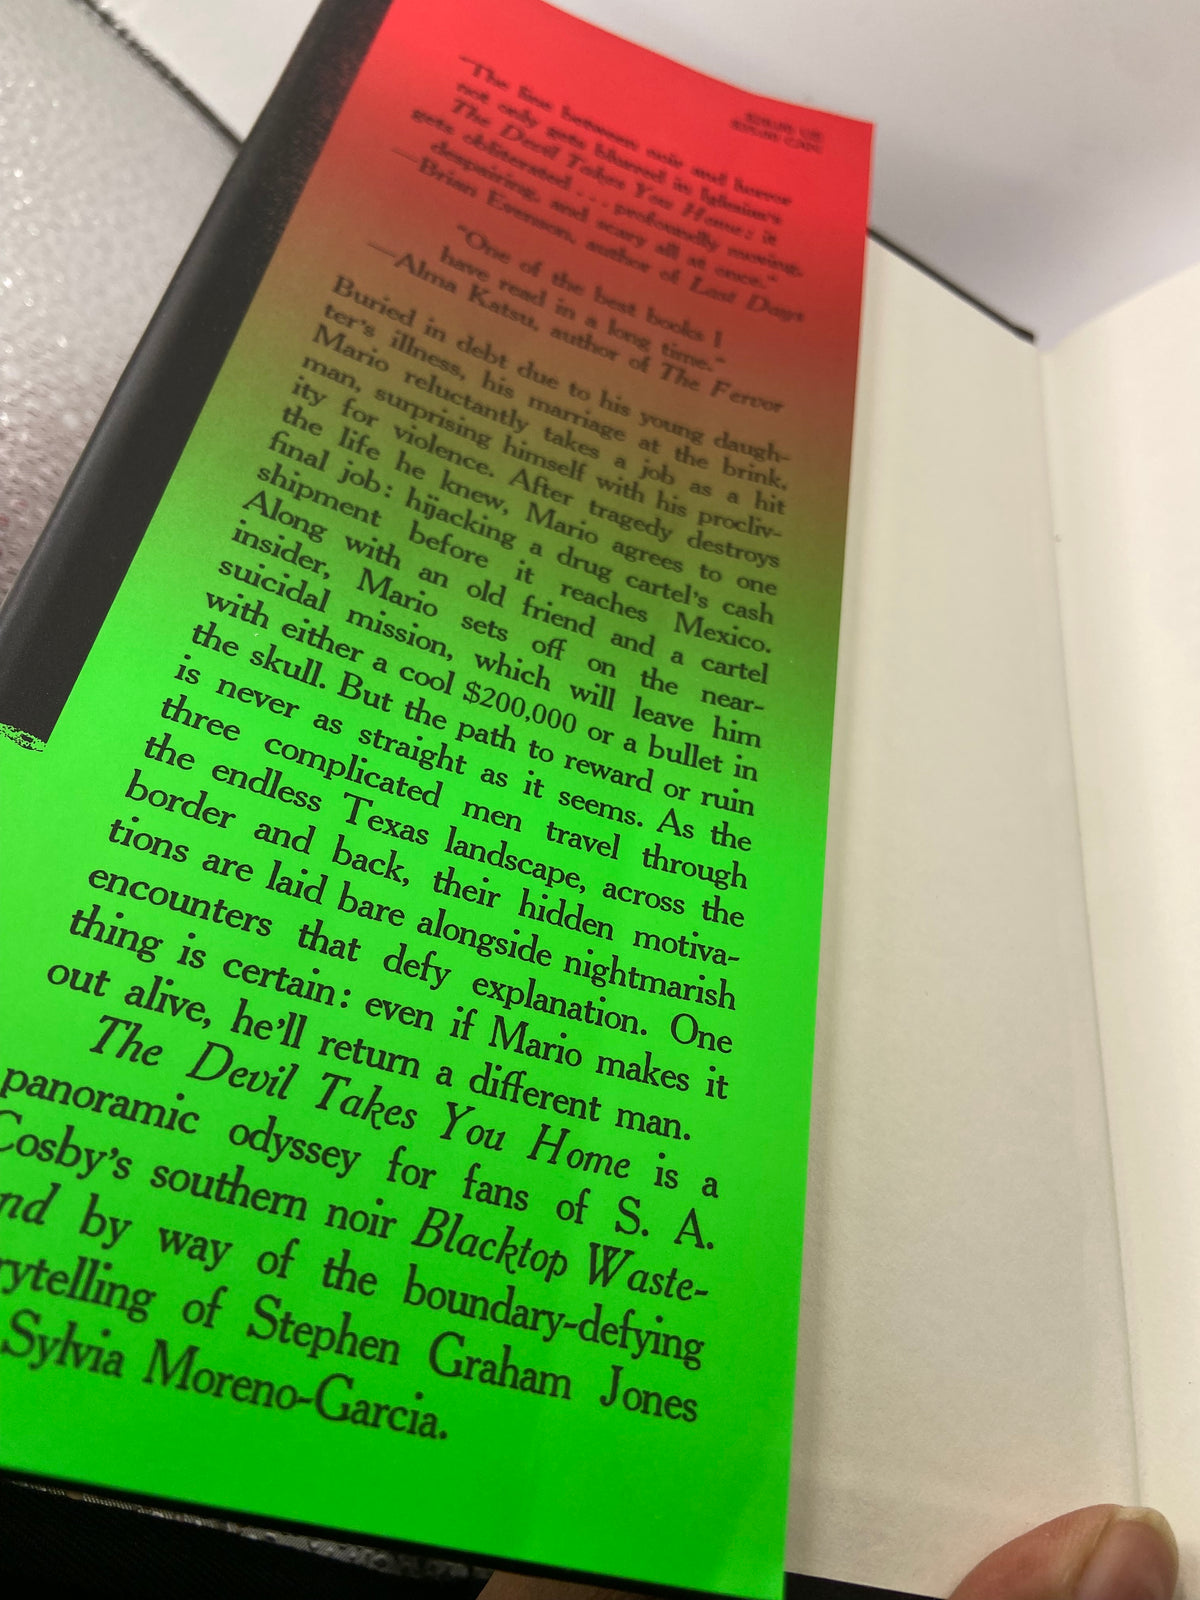 "The line between noir and horror
not only gets blurred in Iglesias's
The Devil Takes You Home: it
gets obliterated . . . profoundly moving,
despairing, and scary all at once."
—Brian Evenson, author of Last Days
"One of the best books I
have read in a long time."
—Alma Katsu, author of The Fervor
Buried in debt due to his young daugh-
ter's illness, his marriage at the brink,
Mario reluctantly takes a job as a hit
man, surprising himself with his procliv-
ity for violence. After tragedy destroys
the life he knew, Mario agrees to one
final job: hijacking a drug cartel's cash
shipment before it reaches Mexico.
Along with an old friend and a cartel
insider, Mario sets off on the near-
suicidal mission, which will leave him
with either a cool $200,000 or a bullet in
the skull. But the path to reward or ruin
is never as straight as it seems. As the
three complicated men travel through
the endless Texas landscape, across the
border and back, their hidden motiva-
tions are laid bare alongside nightmarish
encounters that defy explanation. One
thing is certain: even if Mario makes it
out alive, he'll return a different man.
The Devil Takes You Home is a
panoramic odyssey for fans of S. A.
Cosby's southern noir Blacktop Waste-
nd by way of the boundary-defying
rytelling of Stephen Graham Jones
Sylvia Moreno-Garcia.